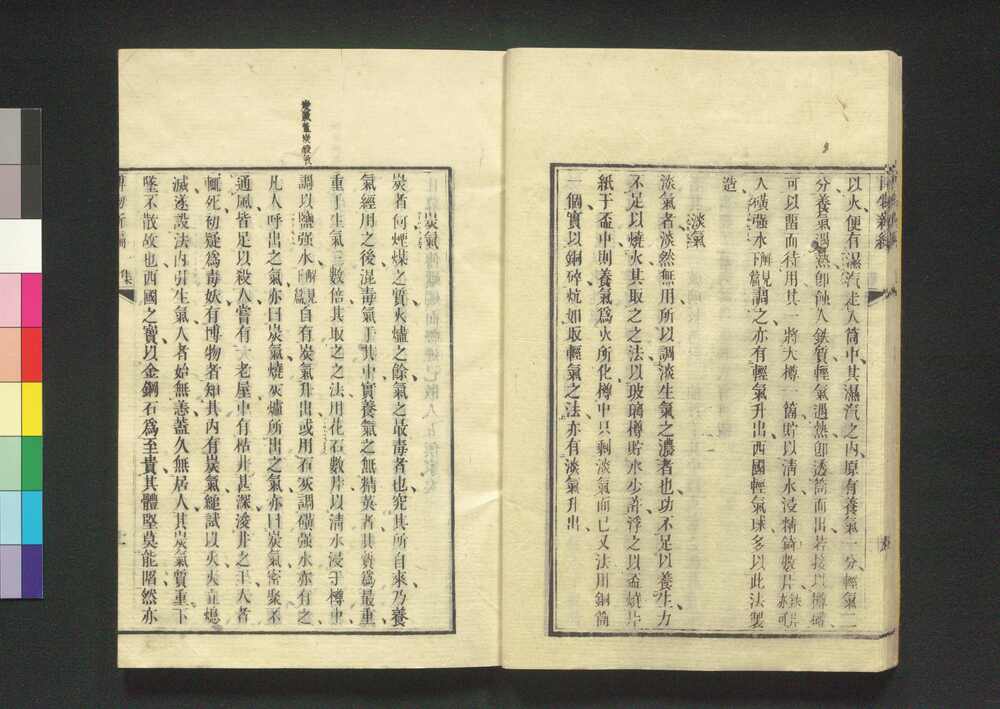 以火便有濕汽走入筒中、其濕汽之內、原有養氣一分、輕氣二
分、養氣遇熱卽蝕入鉄質、輕氣遇熱卽透筒而出、若接以樽罇
可以留而待用、其一將大樽一箇、貯以清水、浸精錡數片、鉄片亦可
入磺强水解見下篇調之、亦有輕氣升出、西國輕氣球多以此法製
造、
淡氣
淡氣者、淡然無用、所以調淡生氣之濃者也、功不足以養生、力
不足以燒火、其取之之法、以玻璃樽貯水少許、浮之以盃、燒片
紙于盃中、則養氣爲火所化、樽中只剩淡氣而已、又法用銅筒
一個、實以銅碎、炕如取輕氣之法、亦有淡氣升出
炭氣
炭者何、煙煤之質、火爐之餘、氣之最毒者也、究其所自來、乃養
氣經用之後、混毒氣于其中、實養氣之無精英者、其質爲最重、
重于生氣三數倍、其取之之法、用花石數片、以清水浸于樽中、
調以鹽强水解見下篇自有炭氣升出、或用石灰調磺强水亦有之、
凡人呼出之氣、亦曰炭氣、燒灰爐所出之氣、亦曰炭氣、密聚不
通風、皆足以殺人、嘗有一大老屋、中有枯井甚深、浚井之工人者
輒死、初疑爲毒妖、有博物者知其內有炭氣、縋試以火、火立熄
滅、遂設法內引生氣、人者始無恙、蓋久無居人、其炭氣質重、下
墜不散故也、西國之寶、以金鋼石爲至貴、其體堅莫能䂳、然亦
博物新編 一集